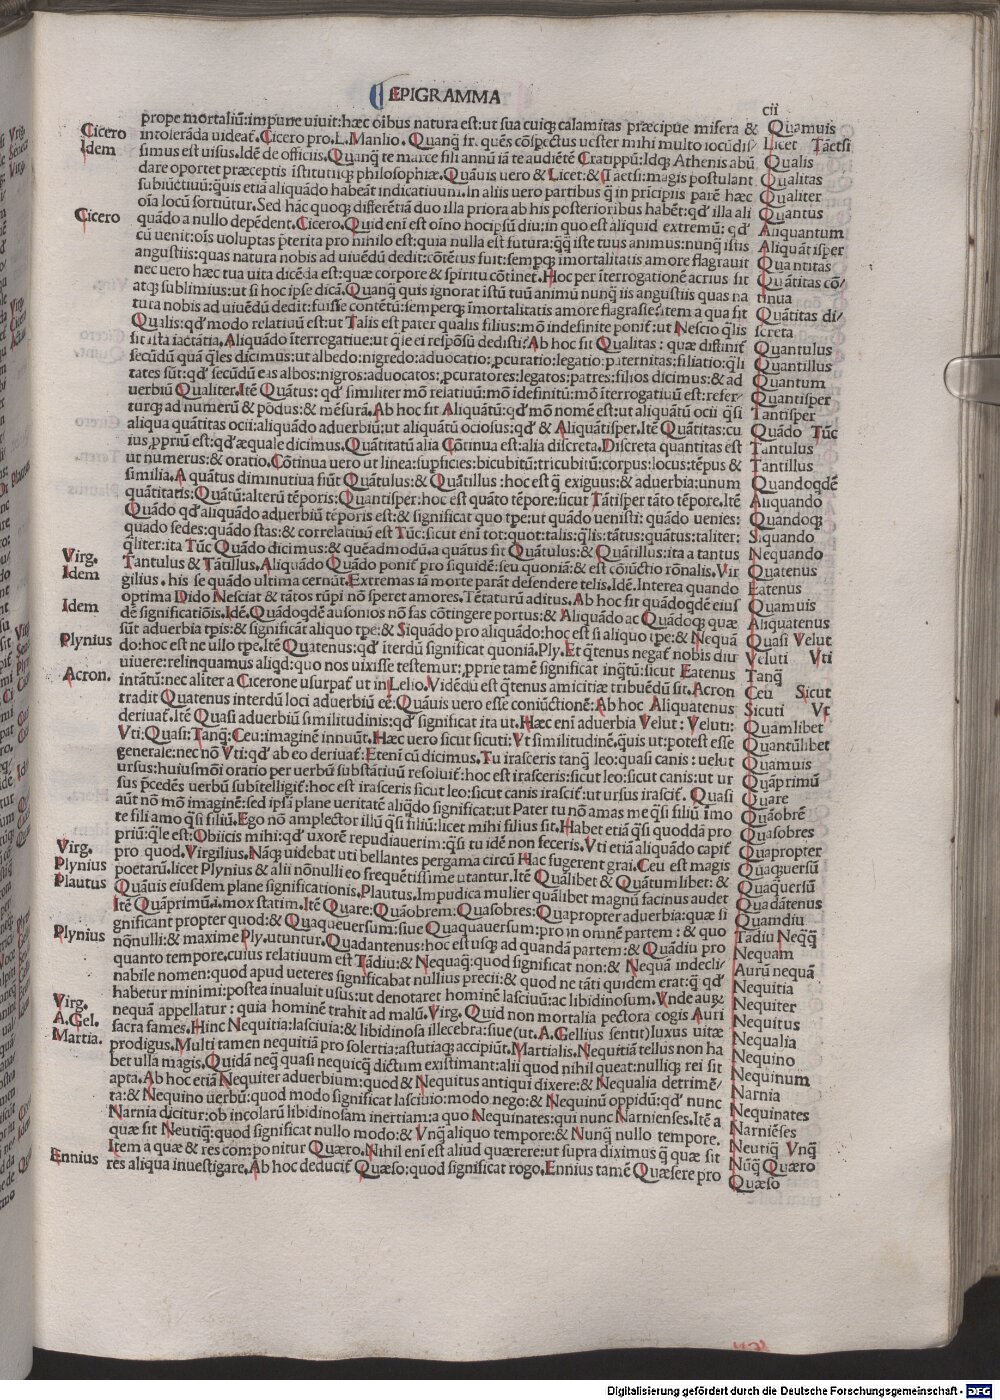 EPIGRAMMA
cii
prope mortaliū:impune uiuit:hæc oībus natura est:ut sua cuiq; calamitas præcipue misera &
intolerāda uideat̄. Cicero pro.L.Manlio. Quanq̄ fr. quēs cōspectus uester mihi multo iocūdis/
simus est uisus. Idē de officiis. Quanq̄ te marce fili annū iā te audiētē Cratippū:Idq; Athenis abū
dare oportet præceptis īstitutiq; philosophiæ. Quāuis uero & Licet:& Tāetsi:magis postulant
subiūctiuū:quis etiā aliquādo habeāt indicatiuum. In aliis uero partibus q̄ in prīcipiis parē hæc
oīa locū sortiūtur. Sed hāc quoq; differētiā duo illa priora ab his posterioribus habēt:qd' illa ali
quādo a nullo depēdent. Cicero. Quid enī est oīno hocipsū diu:in quo est aliquid extremū: qd'
cū uenit:oīs uoluptas pterita pro nihilo est:quia nulla est futura:q̄q̄ iste tuus animus:nunq̄ istis
angustiis:quas natura nobis ad uiuēdū dedit:cōtētus fuit:sempq; īmortalitatis amore flagrauit
nec uero hæc tua uita dicēda est:quæ corpore & spiritu cōtinet̄. Hoc per īterrogationē acrius sit
atq; sublimius:ut si hoc ipse dicā. Quanq̄ quis ignorat istū tuū animū nunq̄ iis angustiis quas na
tura nobis ad uiuēdū dedit:fuisse contētū:semperq; īmortalitatis amore flagrasse:item a qua fit
Qualis:qd' modo relatiuū est:ut Talis est pater qualis filius:mō indefinite ponit̄:ut Nescio q̄lis
sit ista iactātia. Aliquādo īterrogatiue:ut q̄le ei respōsū dedisti? Ab hoc fit Qualitas : quæ distinit̄
secūdū quā q̄les dicimus:ut albedo:nigredo:aduocatio:pcuratio:legatio:paternitas:filiatio:q̄li
tates sūt:qd' secūdū eas albos:nigros:aduocatos:pcuratores:legatos:patres:filios dicimus:& ad
uerbiū Qualiter. Itē Quātus: qd' similiter mō relatiuū:mō indefinitū:mō īterrogatiuū est:refer/
turq; ad numerū & pōdus:& mēsurā. Ab hoc fit Aliquātū:qd' mō nomē est:ut aliquātū ocii q̄si
aliqua quātitas ocii:aliquādo aduerbiū:ut aliquātū ociosus:qd' & Aliquātisper. Itē Quātitas:cu
ius ,ppriū est:qd' æquale dicimus. Quātitatū alia Cōtinua est:alia discreta. Discreta quantitas est
ut numerus:& oratio. Cōtinua uero ut linea:supficies:bicubitū:tricubitū:corpus:locus:tēpus &
similia. A quātus diminutiua fiūt Quātulus:& Quātillus :hoc est q̄ exiguus:& aduerbia:unum
quātitatis: Quātū:alterū tēporis:Quantisper:hoc est quāto tēpore:sicut Tātisper tāto tēpore. Itē
Quādo qd' aliquādo aduerbiū tēporis est:& significat quo tpe:ut quādo uenisti: quādo uenies:
quado sedes:quādo stas:& correlatiuū est Tūc:sicut enī tot:quot:talis:q̄lis:tātus:quātus:taliter:
q̄liter:ita Tūc Quādo dicimus:& quēadmodū.a quātus fit Quātulus:& Quātillus:ita a tantus
Tantulus & Tātillus. Aliquādo Quādo ponit̄ pro siquidē:seu quoniā:& est cōiūctio rōnalis.Vir
gilius . his se quādo ultima cernūt. Extremas iā morte parāt defendere telis. Idē. Interea quando
optima Dido Nesciat & tātos rūpi nō speret amores. Tētaturū aditus. Ab hoc fit quādoqdē eius
dē significatiōis. Idē. Quādoqdē ausonios nō fas cōtingere portus:& Aliquādo ac Quādoq; quæ
sūt aduerbia tpis:& significāt aliquo tpe:& Siquādo pro aliquādo:hoc est si aliquo tpe:& Nequā
do:hoc est ne ullo tpe. Itē Quatenus:qd' iterdū significat quoniā. Ply. Et q̄tenus negat̄ nobis diu
uiuere:relinquamus aliqd:quo nos uixisse testemur:pprie tamē significat inq̄tū:sicut Eatenus
intātū:nec aliter a Cicerone usurpat̄ ut in Lelio. Vidēdū est q̄tenus amicitiæ tribuēdū sit. Acron
tradit Quatenus interdū loci aduerbiū eē. Quāuis uero esse coniūctionē:Ab hoc Aliquatenus
deriuat̄. Itē Quasi aduerbiū similitudinis:qd' significat ita ut. Hæc enī aduerbia Velut: Veluti:
Vti:Quasi:Tanq̄:Ceu:imaginē innuūt. Hæc uero sicut sicuti: Vt similitudinē.quis ut:potest esse
generale:nec nō Vti:qd' ab eo deriuat̄: Etenī cū dicimus. Tu irasceris tanq̄ leo:quasi canis: uelut
ursus:huiusmōi oratio per uerbū substātiuū resoluit̄:hoc est irasceris:sicut leo:sicut canis:ut ur
sus p̄cedēs uerbū substelligit̄:hoc est irasceris sicut leo:sicut canis irascit̄:ut ursus irascit̄. Quasi
aūt nō mō imaginē:sed ipsā plane ueritatē aliqdo significat:ut Pater tu nō amas me q̄si filiū īmo
te fili amo q̄si filiū. Ego nō amplector illū q̄si filiū:licet mihi filius sit. Habet etiā q̄si quoddā pro
priū:q̄le est:Obiicis mihi:qd' uxorē repudiauerim:q̄si tu idē non feceris. Vti etiā aliquādo capit̄
pro quod. Virgilius. Nāq; uidebat uti bellantes pergama circū Hac fugerent grai. Ceu est magis
poetarū.licet Plynius & alii nōnulli eo frequētissime utantur. Itē Quālibet & Quātumlibet: &
Quāuis eiusdem plane significationis. Plautus. Impudica mulier quālibet magnū facinus audet
Itē Quāprimū.i.mox statim. Itē Quare:Quāobrem:Quasobres:Quapropter aduerbia:quæ si
gnificant propter quod:& Quaqueuersum:siue Quaquauersum:pro in omnē partem : & quo
nōnulli:& maxime Ply.utuntur. Quadantenus:hoc est usq; ad quandā partem:& Quādiu pro
quanto tempore.cuius relatiuum est Tādiu:& Nequaq̄:quod significat non:& Nequā indecli/
nabile nomen:quod apud ueteres significabat nullius precii:& quod ne tāti quidem erat:q̄ qd'
habetur minimi:postea inualuit usus:ut denotaret hominē lasciuū:ac libidinosum. Vnde aug:
nequā appellatur : quia hominē trahit ad malū. Virg. Quid non mortalia pectora cogis Auri
sacra fames. Hinc Nequitia:lasciuia:& libidinosa illecebra:siue(ut. A.Gellius sentit)luxus uitæ
prodigus. Multi tamen nequitiā pro solertia:astutiaq; accipiūt. Martialis. Nequitiā tellus non ha
bet ulla magis. Quidā neq̄ quasi nequicq̄ dictum existimant:alii quod nihil queat:nulliq; rei sit
apta. Ab hoc etiā Nequiter aduerbium:quod & Nequitus antiqui dixere:& Nequalia detrimē/
ta:& Nequino uerbū:quod modo significat lasciuio:modo nego:& Nequinū oppidū:qd' nunc
Narnia dicitur:ob incolarū libidinosam inertiam:a quo Nequinates:qui nunc Narnienses. Itē a
quæ sit Neutiq̄:quod significat nullo modo:& Vnq̄ aliquo tempore:& Nunq̄ nullo tempore.
Item a quæ & res componitur Quæro. Nihil enī est aliud quærere:ut supra diximus q̄ quæ sit
res aliqua inuestigare. Ab hoc deducit̄ Quæso:quod significat rogo. Ennius tamē Quæsere pro
Cicero
Idem
Cicero
Virg.
Idem
Idem
Plynius
Acron.
Virg.
Plynius
Plautus
Plynius
Virg.
A.Gel.
Martia.
Ennius
Quamuis
Licet Tāetsi
Qualis
Qualitas
Qualiter
Quantus
Aliquantum
Aliquātisper
Quantitas
Quātitas cō/
tinua
Quātitas di/
screta
Quantulus
Quantillus
Quantum
Quantisper
Tantisper
Quādo Tūc
Tantulus
Tantillus
Quandoqdē
Aliquando
Quandoq;
Siquando
Nequando
Quatenus
Eatenus
Quamuis
Aliquatenus
Quasi Velut
Veluti Vti
Tanq̄
Ceu Sicut
Sicuti Vt
Quamlibet
Quantūlibet
Quamuis
Quāprimū
Quare
Quāobrē
Quasobres
Quapropter
Quaq;uersū
Quaquersū
Quadātenus
Quamdiu
Tādiu Neq̄q̄
Nequam
Aurū nequā
Nequitia
Nequiter
Nequitus
Nequalia
Nequino
Nequinum
Narnia
Nequinates
Narniēses
Neutiq̄ Vnq̄
Nūq̄ Quæro
Quæso
Digitalisierung gefördert durch die Deutsche Forschungsgemeinschaft - DFG